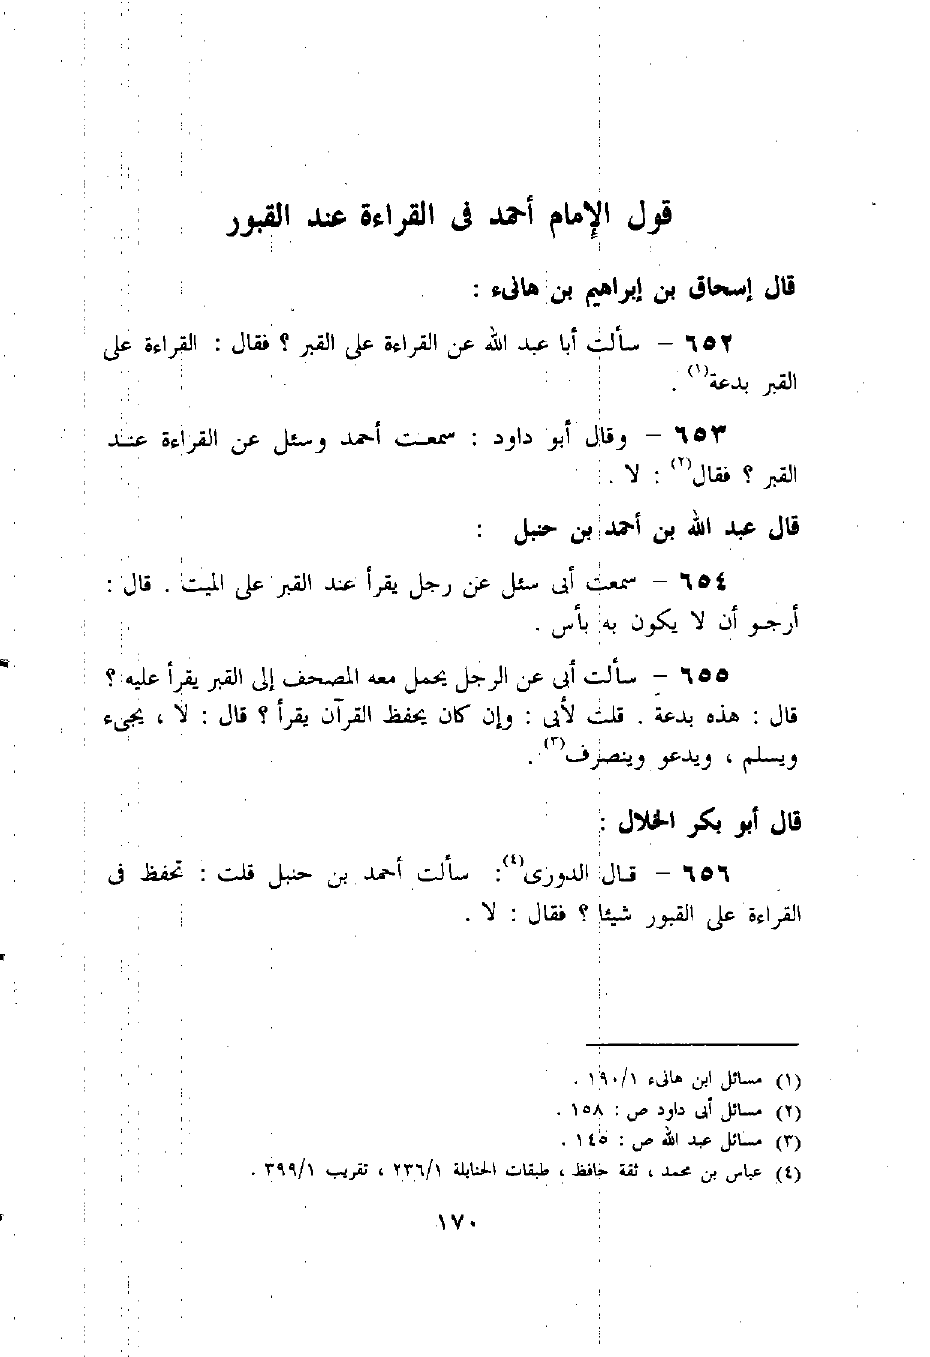 قول الإمام أحمد فى القراءة عند القبور
قال إسحاق بن إبراهيم بن هانىء :
٦٥٢ – سألت أبا عبد الله عن القراءة على القبر ؟ فقال : القراءة على
القبر بدعة(١) .
٦٥٣ – وقال أبو داود : سمعت أحمد وسئل عن القراءة عند
القبر ؟ فقال(٢) : لا .
قال عبد الله بن أحمد بن حنبل :
٦٥٤ – سمعت أبى سئل عن رجل يقرأ عند القبر على الميت . قال :
أرجو أن لا يكون به بأس .
٦٥٥ – سألت أبى عن الرجل يحمل معه المصحف إلى القبر يقرأ عليه ؟
قال : هذه بدعة . قلت لأبى : وإن كان يحفظ القرآن يقرأ ؟ قال : لا ، يجىء
ويسلم ، ويدعو وينصرف(٣) .
قال أبو بكر الخلال :
٦٥٦ – قال الدورى(٤): سألت أحمد بن حنبل قلت : تحفظ فى
القراءة على القبور شيئا ؟ فقال : لا .
(١) مسائل ابن هانىء ١٩٠/١ .
(٢) مسائل أبى داود ص : ١٥٨ .
(٣) مسائل عبد الله ص : ١٤٥ .
(٤) عباس بن محمد ، ثقة حافظ ، طبقات الحنابلة ٢٣٦/١ ، تقريب ٣٩٩/١ .
١٧٠